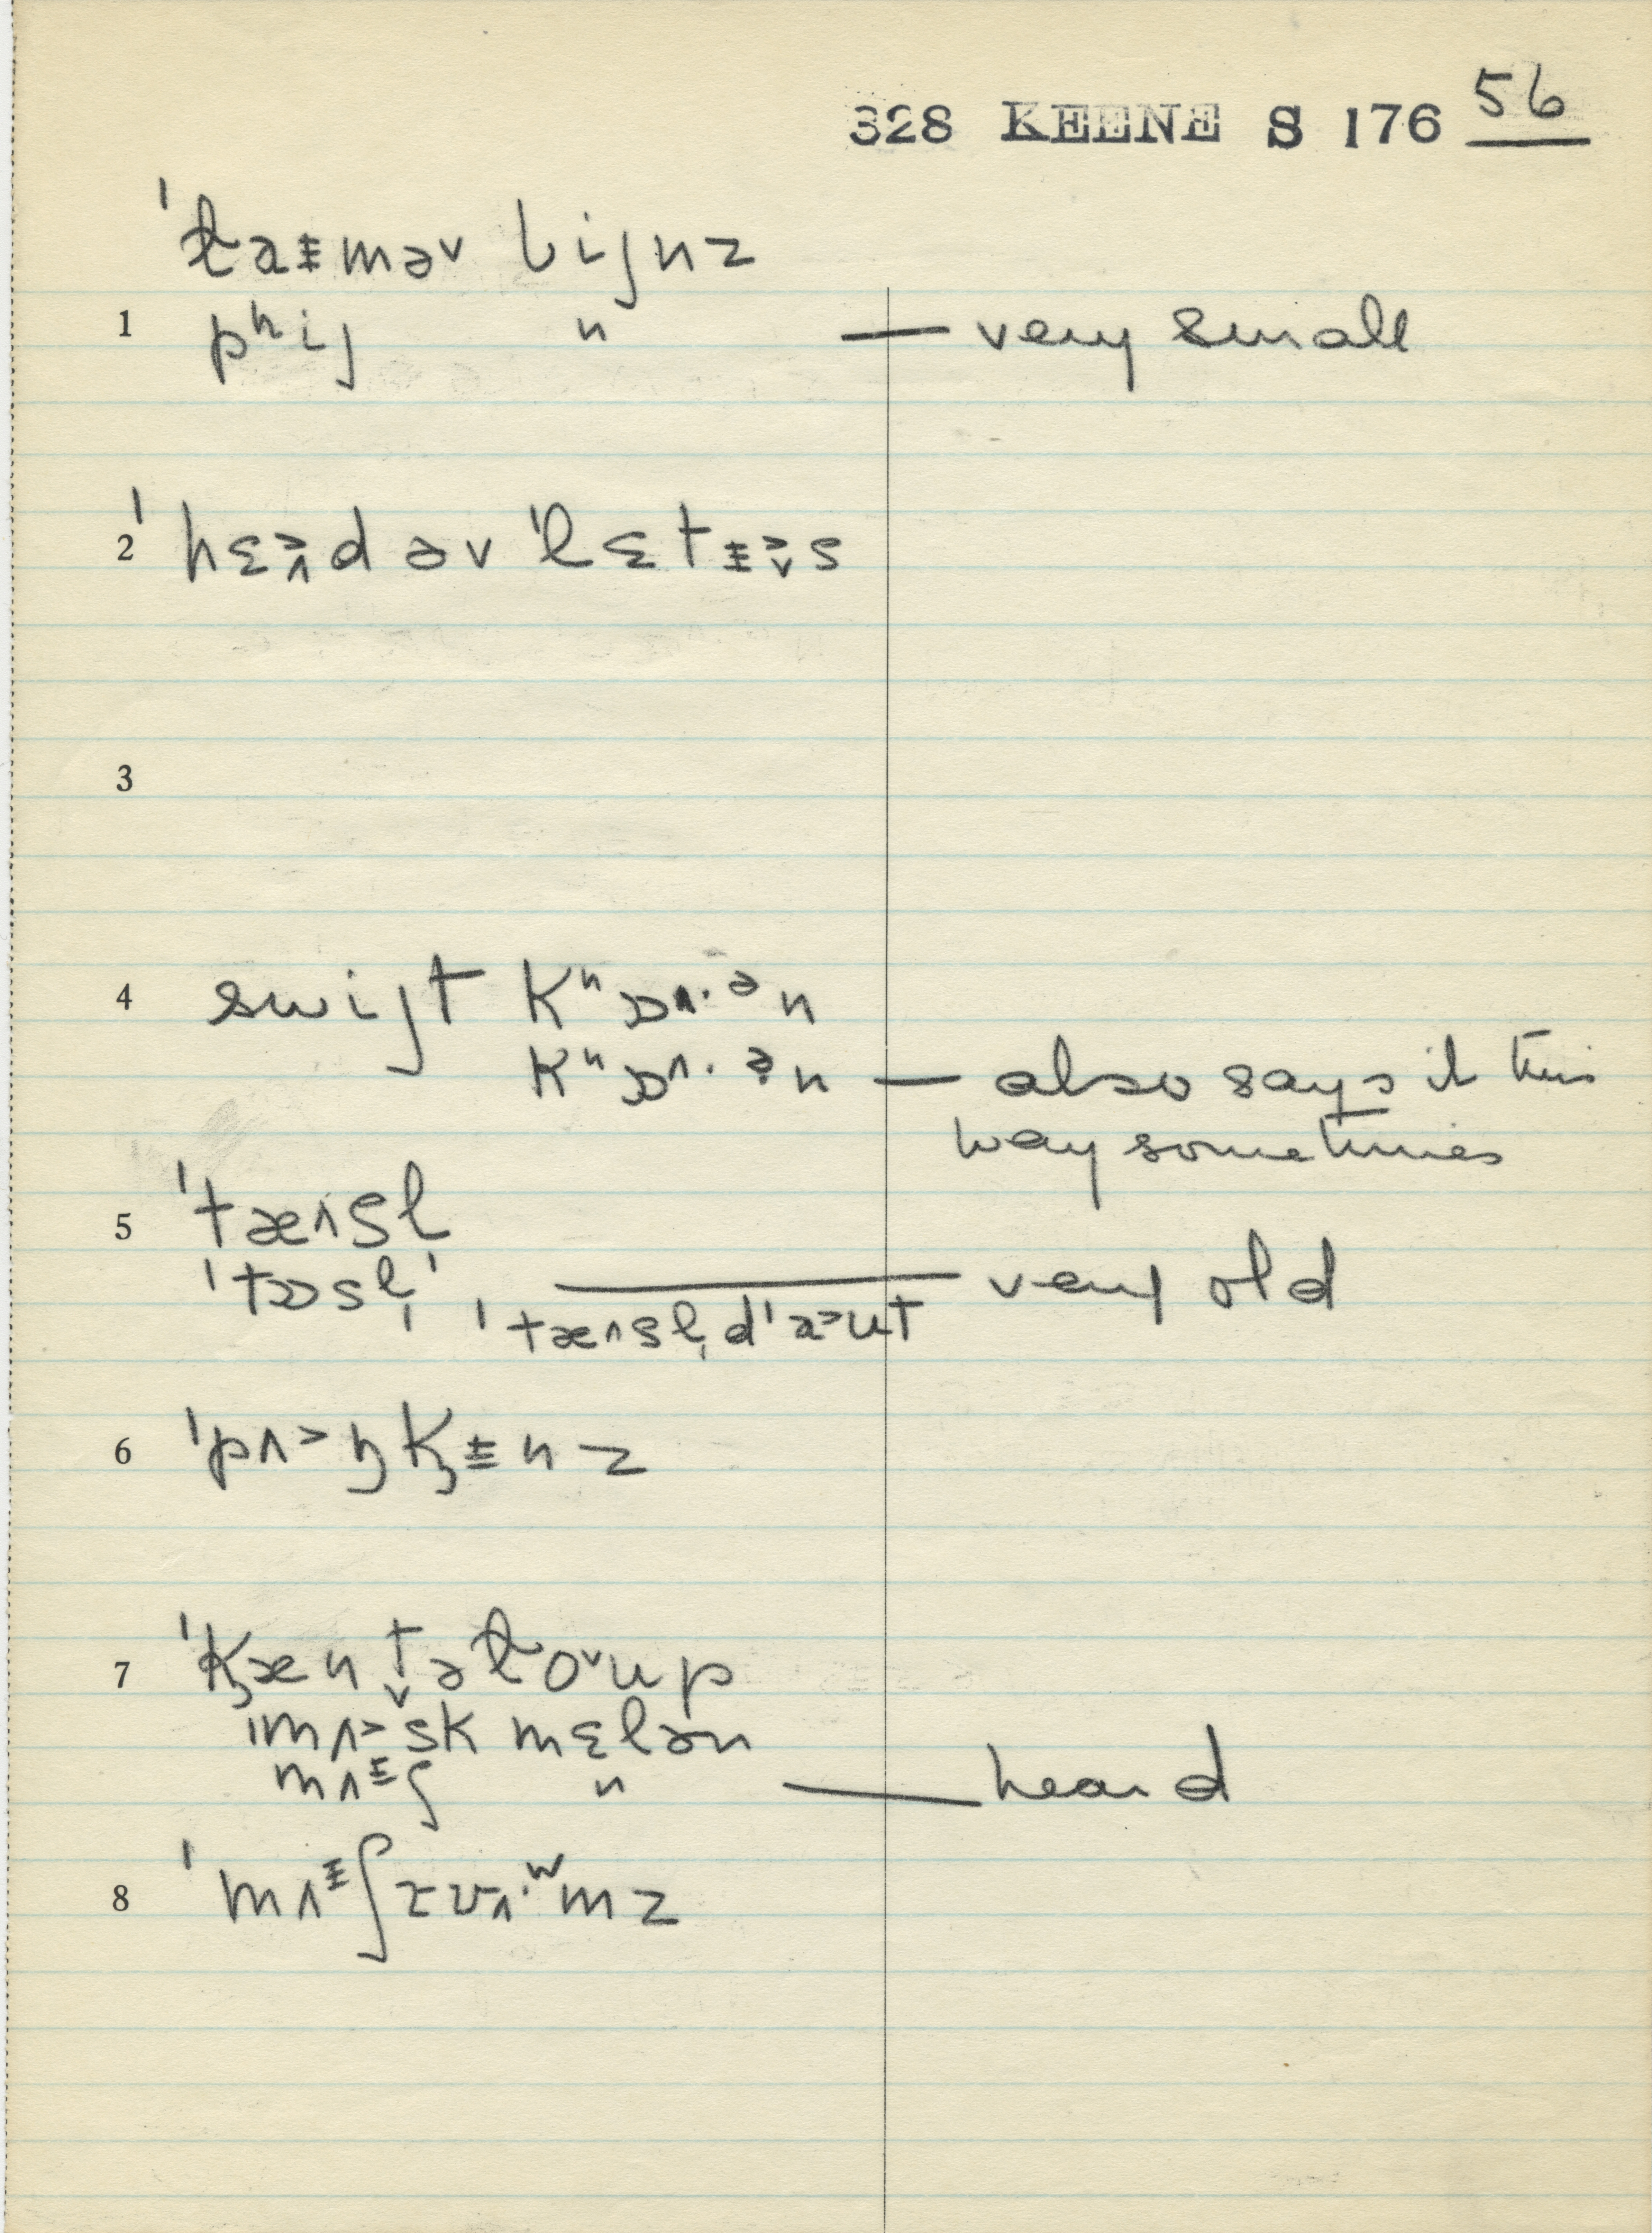 328 KEENE S 176 56
ˈɫaᵻməv bijnz
1 pʰij " — very small
2 ˈhɛɚd əv ˈlɛtᵻəs
3
4 swijt Kʰɒ^·ᵊn
Kʰɒ^·ᵊn — also says it this
way sometimes
5 ˈtæ^sl
ˈtɒsl̩ ˈ —— very old
ˈtæ^sl̩dˈa>ut
6 ˈpʌ>ŋkᵻnz
7 ˈkæntəɫoᵛup
ˈmʌ>sk mɛlən
mʌᵻʃ " — heard
8 ˈmʌᵻʃrʊ^·ʷmz